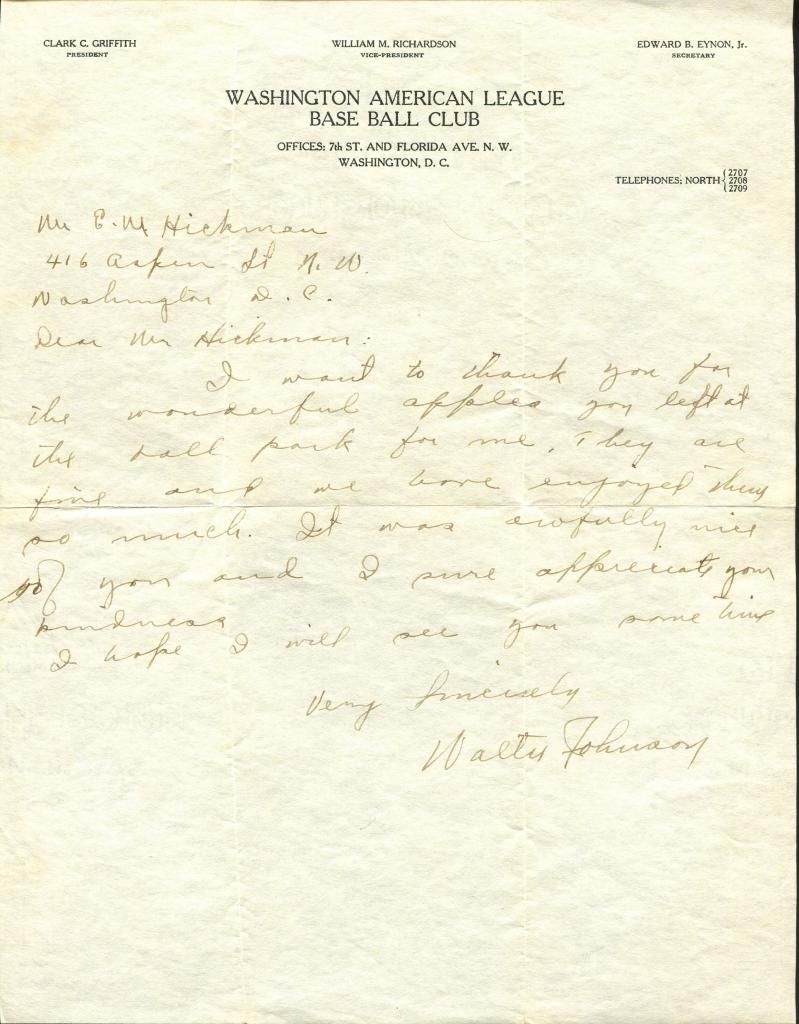 CLARK C. GRIFFITH
PRESIDENT
WILLIAM M. RICHARDSON
VICE-PRESIDENT
EDWARD B. EYNON, Jr.
SECRETARY
WASHINGTON AMERICAN LEAGUE
BASE BALL CLUB
OFFICES: 7th ST. AND FLORIDA AVE. N. W.
WASHINGTON, D. C.
TELEPHONES: NORTH { 2707
2708
2709
Mr E. M Hickman
416 Aspen St N. W.
Washington D. C.
Dear Mr Hickman:
I want to thank you for
the wonderful apples you left at
the ball park for me. They are
fine and we have enjoyed them
so much. It was awfully nice
of you and I sure appreciate your
kindness
I hope I will see you some time
Very Sincerely
Walter Johnson